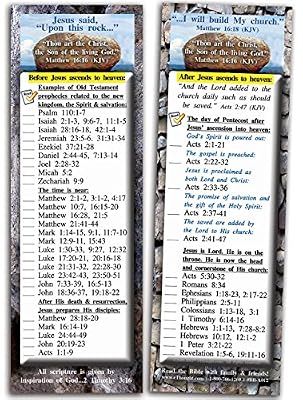 Jesus said,
"Upon this rock..."
"Thou art the Christ,
the Son of the living God."
Matthew 16:16 (KJV)
Before Jesus ascends to heaven:
Examples of Old Testament
prophecies related to the new
kingdom, the Spirit & salvation:
Psalm 110:1-7
Isaiah 2:1-3, 9:6-7, 11:1-5
Isaiah 28:16-18, 42:1-4
Jeremiah 23:5-6, 31:31-34
Ezekiel 37:21-28
Daniel 2:44-45, 7:13-14
Joel 2:28-32
Micah 5:2
Zechariah 9:9
The time is near:
Matthew 2:1-2, 3:1-2, 4:17
Matthew 10:7, 16:15-20
Matthew 16:28, 21:5
Matthew 21:41-44
Mark 1:14-15, 9:1, 11:7-10
Mark 12:9-11, 15:43
Luke 1:30-33, 9:27, 12:32
Luke 17:20-21, 20:16-18
Luke 21:31-32, 22:28-30
Luke 23:42-43, 23:50-51
John 7:33-39, 16:5-13
John 18:36-37, 19:18-22
After His death & resurrection,
Jesus prepares His disciples:
Matthew 28:18-20
Mark 16:14-19
Luke 24:44-49
John 20:19-23
Acts 1:1-9
All scripture is given by
inspiration of God...2 Timothy 3:16
"...I will build My church."
Matthew 16:18 (KJV)
"Thou art the Christ,
the Son of the living God."
Matthew 16:16 (KJV)
After Jesus ascends to heaven:
"And the Lord added to the
church daily such as should
be saved." Acts 2:47 (KJV)
The day of Pentecost after
Jesus' ascension into heaven:
God's Spirit is poured out:
Acts 2:1-21
The gospel is preached:
Acts 2:22-32
Jesus is proclaimed as
both Lord and Christ:
Acts 2:33-36
The promise of salvation and
the gift of the Holy Spirit:
Acts 2:37-41
The saved are added by
the Lord to His church:
Acts 2:41-47
Jesus is Lord. He is on the
throne. He is now the head
and cornerstone of His church:
Acts 5:30-32
Romans 8:34
Ephesians 1:18-23, 2:17-22
Philippians 2:5-11
Colossians 1:13-18, 3:1
1 Timothy 6:14-16
Hebrews 1:1-13, 7:28-8:2
Hebrews 10:12, 12:1-2
1 Peter 3:21-22
Revelation 1:5-6, 19:11-16
Read the Bible with family & friends!